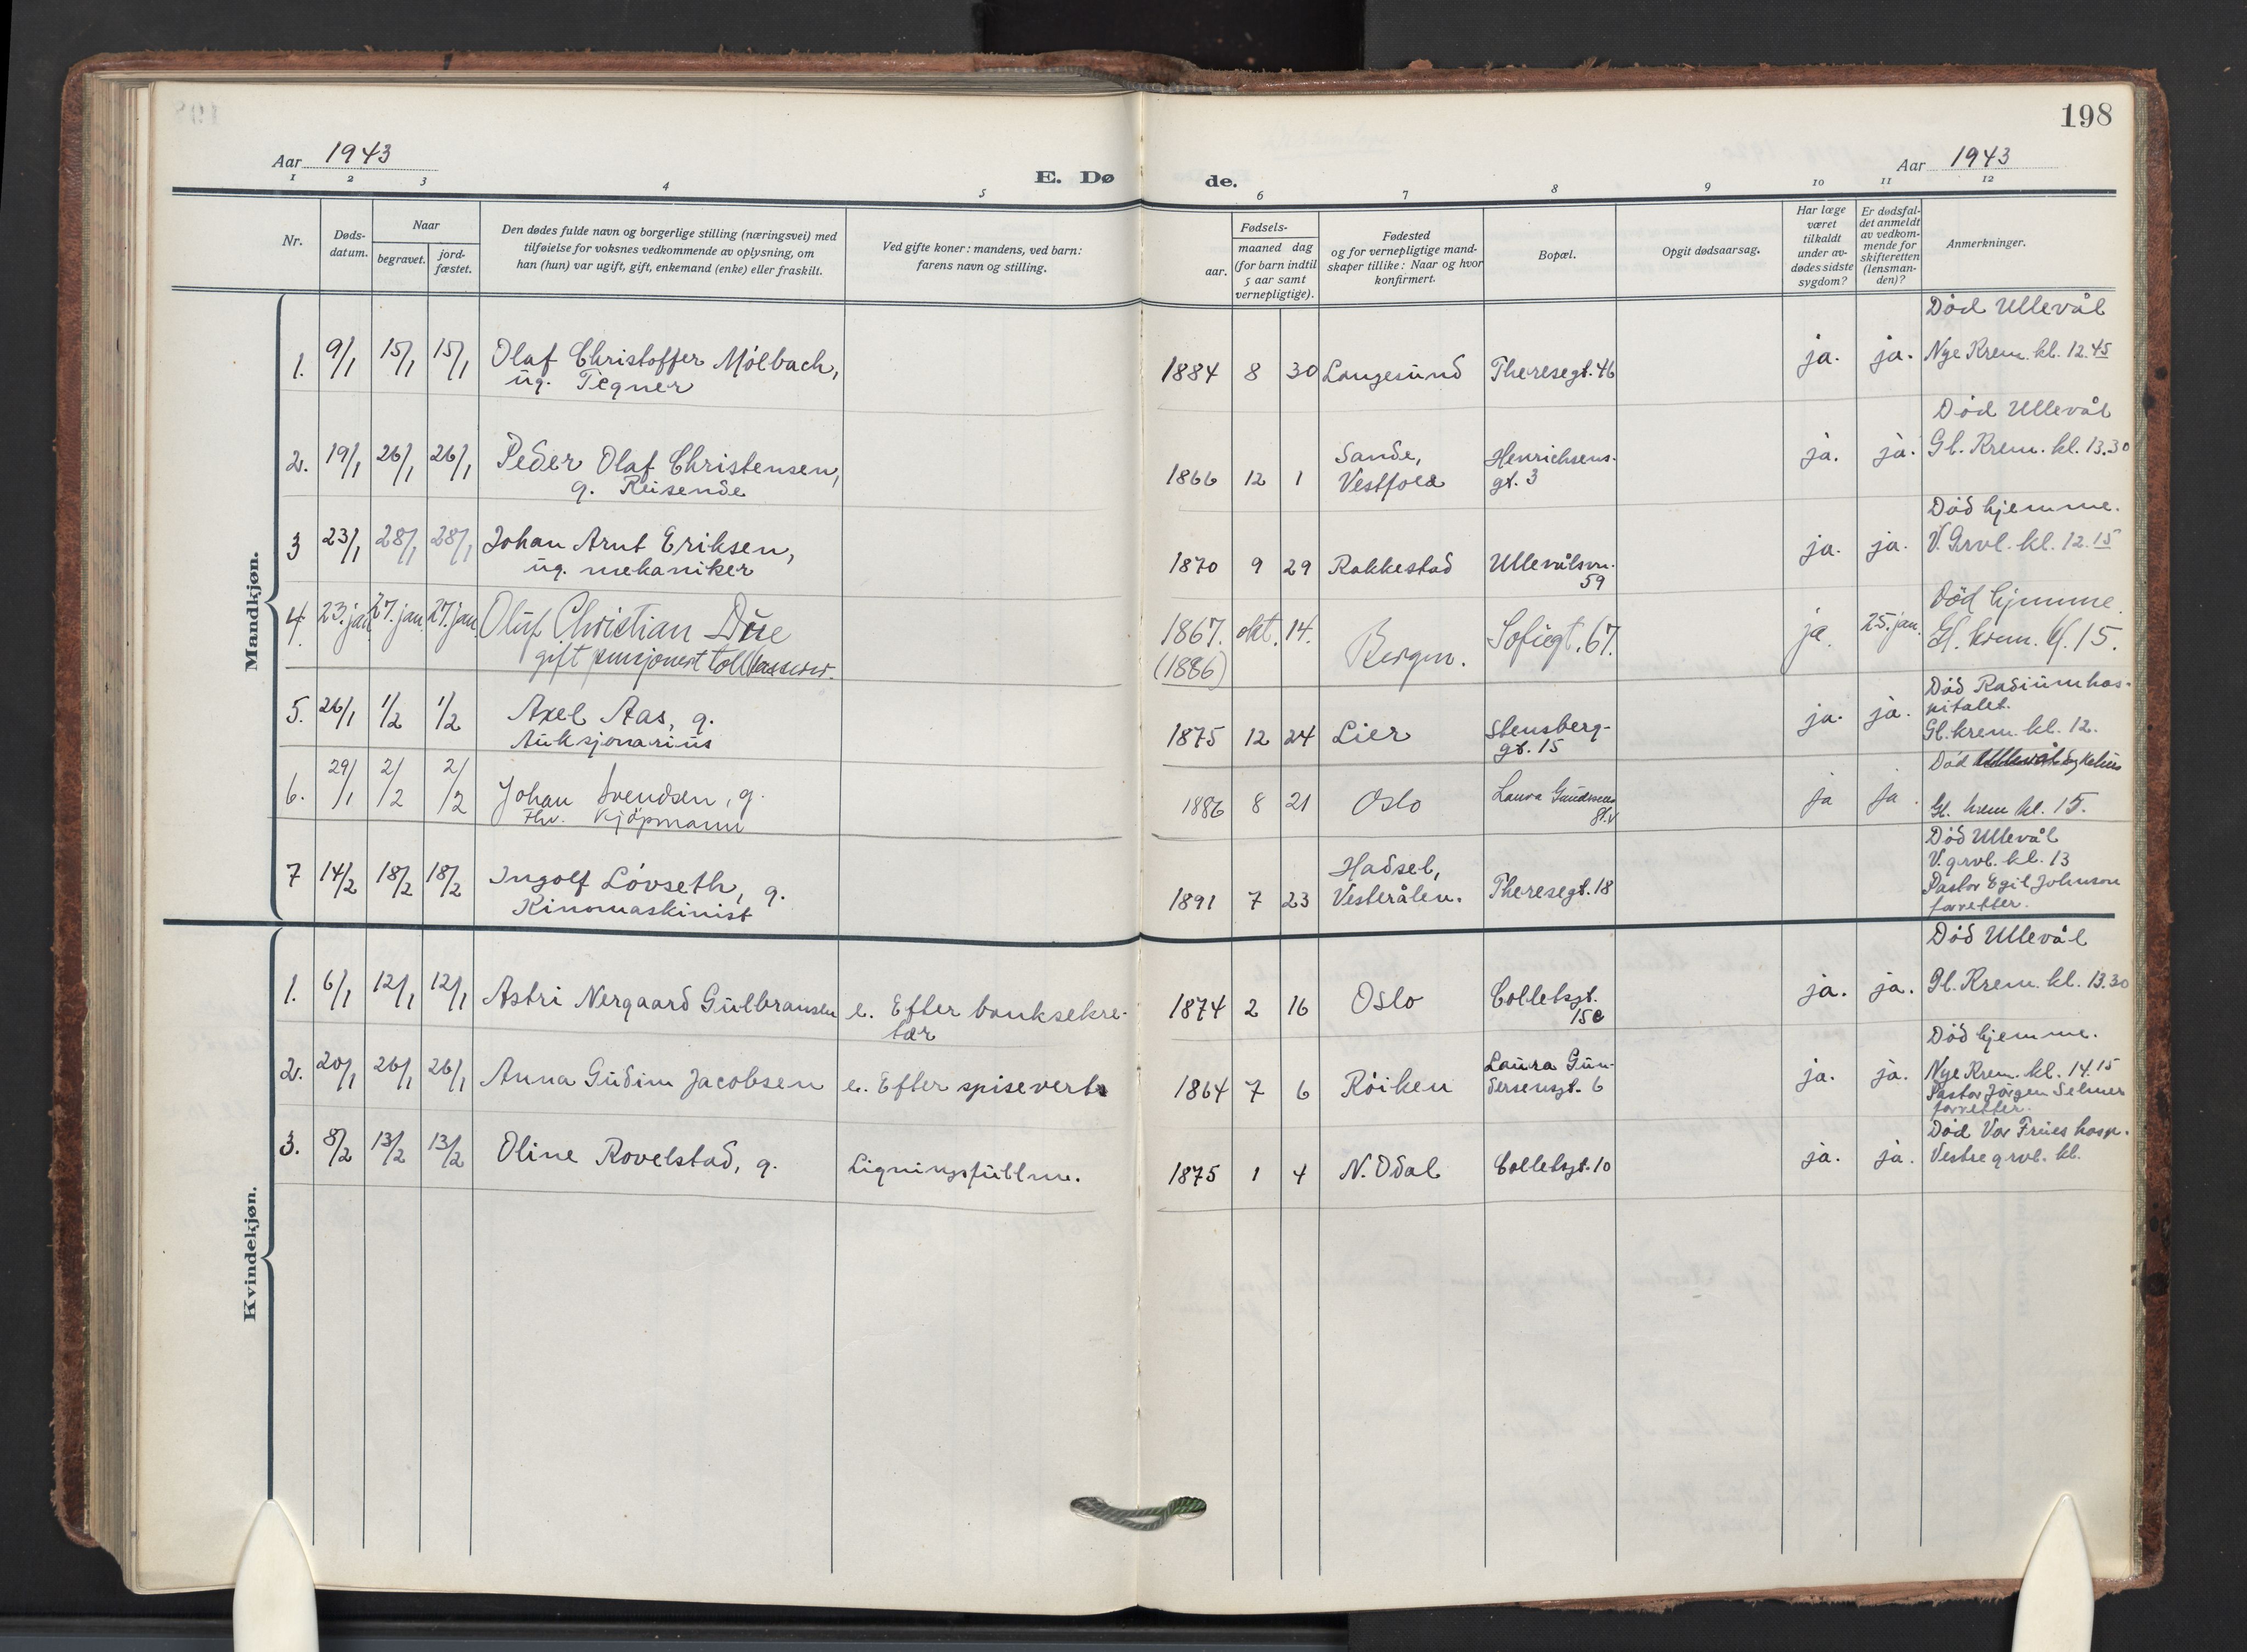 198
Aar 1943
E. Døde.
Aar 1943
1 2 3 4 5 6 7 8 9 10 11 12
Nr.
Døds-
datum.
Naar
begravet.
jord-
fæstet.
Den dødes fulde navn og borgerlige stilling (næringsvei) med
tilføielse for voksnes vedkommende av oplysning, om
han (hun) var ugift, gift, enkemand (enke) eller fraskilt.
Ved gifte koner: mandens, ved barn:
farens navn og stilling.
Fødsels-
aar.
maaned dag
(for barn indtil
5 aar samt
vernepligtige).
Fødested
og for vernepligtige mand-
skaper tillike: Naar og hvor
konfirmert.
Bopæl.
Opgit dødsaarsag.
Har læge
været
tilkaldt
under av-
dødes sidste
sygdom?
Er dødsfal-
det anmeldt
av vedkom-
mende for
skifteretten
(lensman-
den)?
Anmerkninger.
Mandkjøn.
1. 9/1 15/1 15/1 Olaf Christoffer Mölbach,
ug. Tegner
1884 8 30 Langesund Theresegt. 46 ja. ja.
Död Ullevål
Nye Krem. kl. 12.45
2. 19/1 26/1 26/1 Peder Olaf Christensen,
g. Reisende
1866 12 1 Sande,
Vestfold
Henrichsens-
gt. 3
ja. ja.
Död Ullevål
Gl. Krem. kl. 13.30
3 23/1 28/1 28/1 Johan Arnt Eriksen,
ug. mekaniker
1870 9 29 Rakkestad Ullevålsvn.
59
ja. ja.
Död hjemme.
V. Grvl. kl. 12.15
4. 23. jan. 27. jan. 27. jan. Oluf Christian
gift pensjonert
1867. okt. 14. Bergen. Sofiegt. 67.
(1886)
ja. 25. jan.
Död hjemme.
Gl. krem. kl. 15.
5. 26/1 1/2 1/2 Axel Aas, g.
Auksjonarius
1875 12 24 Lier Stensberg-
gt. 15
ja. ja.
Död Radiumhos-
pitalet.
Gl. krem. kl. 12.
6. 29/1 2/2 2/2 Johan Svendsen, g.
Fhv. Kjöpmann
1886 8 21 Oslo Laura
ja ja.
Död Ullevål
Gl. krem kl. 15.
7 14/2 18/2 18/2 Ingolf Lövseth, g.
Kinomaskinist
1891 7 23 Hadsel,
Vesterålen.
Theresegt. 18
Död Ullevål
V. grvl. kl. 13
Pastor Egil Johnson
forretter.
Kvindekjøn.
1. 6/1 12/1 12/1 Astri Nergaard Gulbransen e. Efter banksekre-
tær
1874 2 16 Oslo Colletsgt.
15c
ja. ja.
Död Ullevål
Gl. Krem. kl. 13.30
2. 20/1 26/1 26/1 Anna Gudim Jacobsen e. Efter spisevert
1864 7 6 Röiken Laura Gun-
dersensgt. 6
ja. ja.
Död hjemme.
Nye Krem. kl. 14.15
Pastor Jörgen Selmer
forretter.
3. 8/2 13/2 13/2 Oline Rovelstad, g. Ligningsfullm.
1875 1 4 N. Odal Colletsgt. 10 ja. ja.
Död Vor Frues hosp.
Vestre grvl. kl.